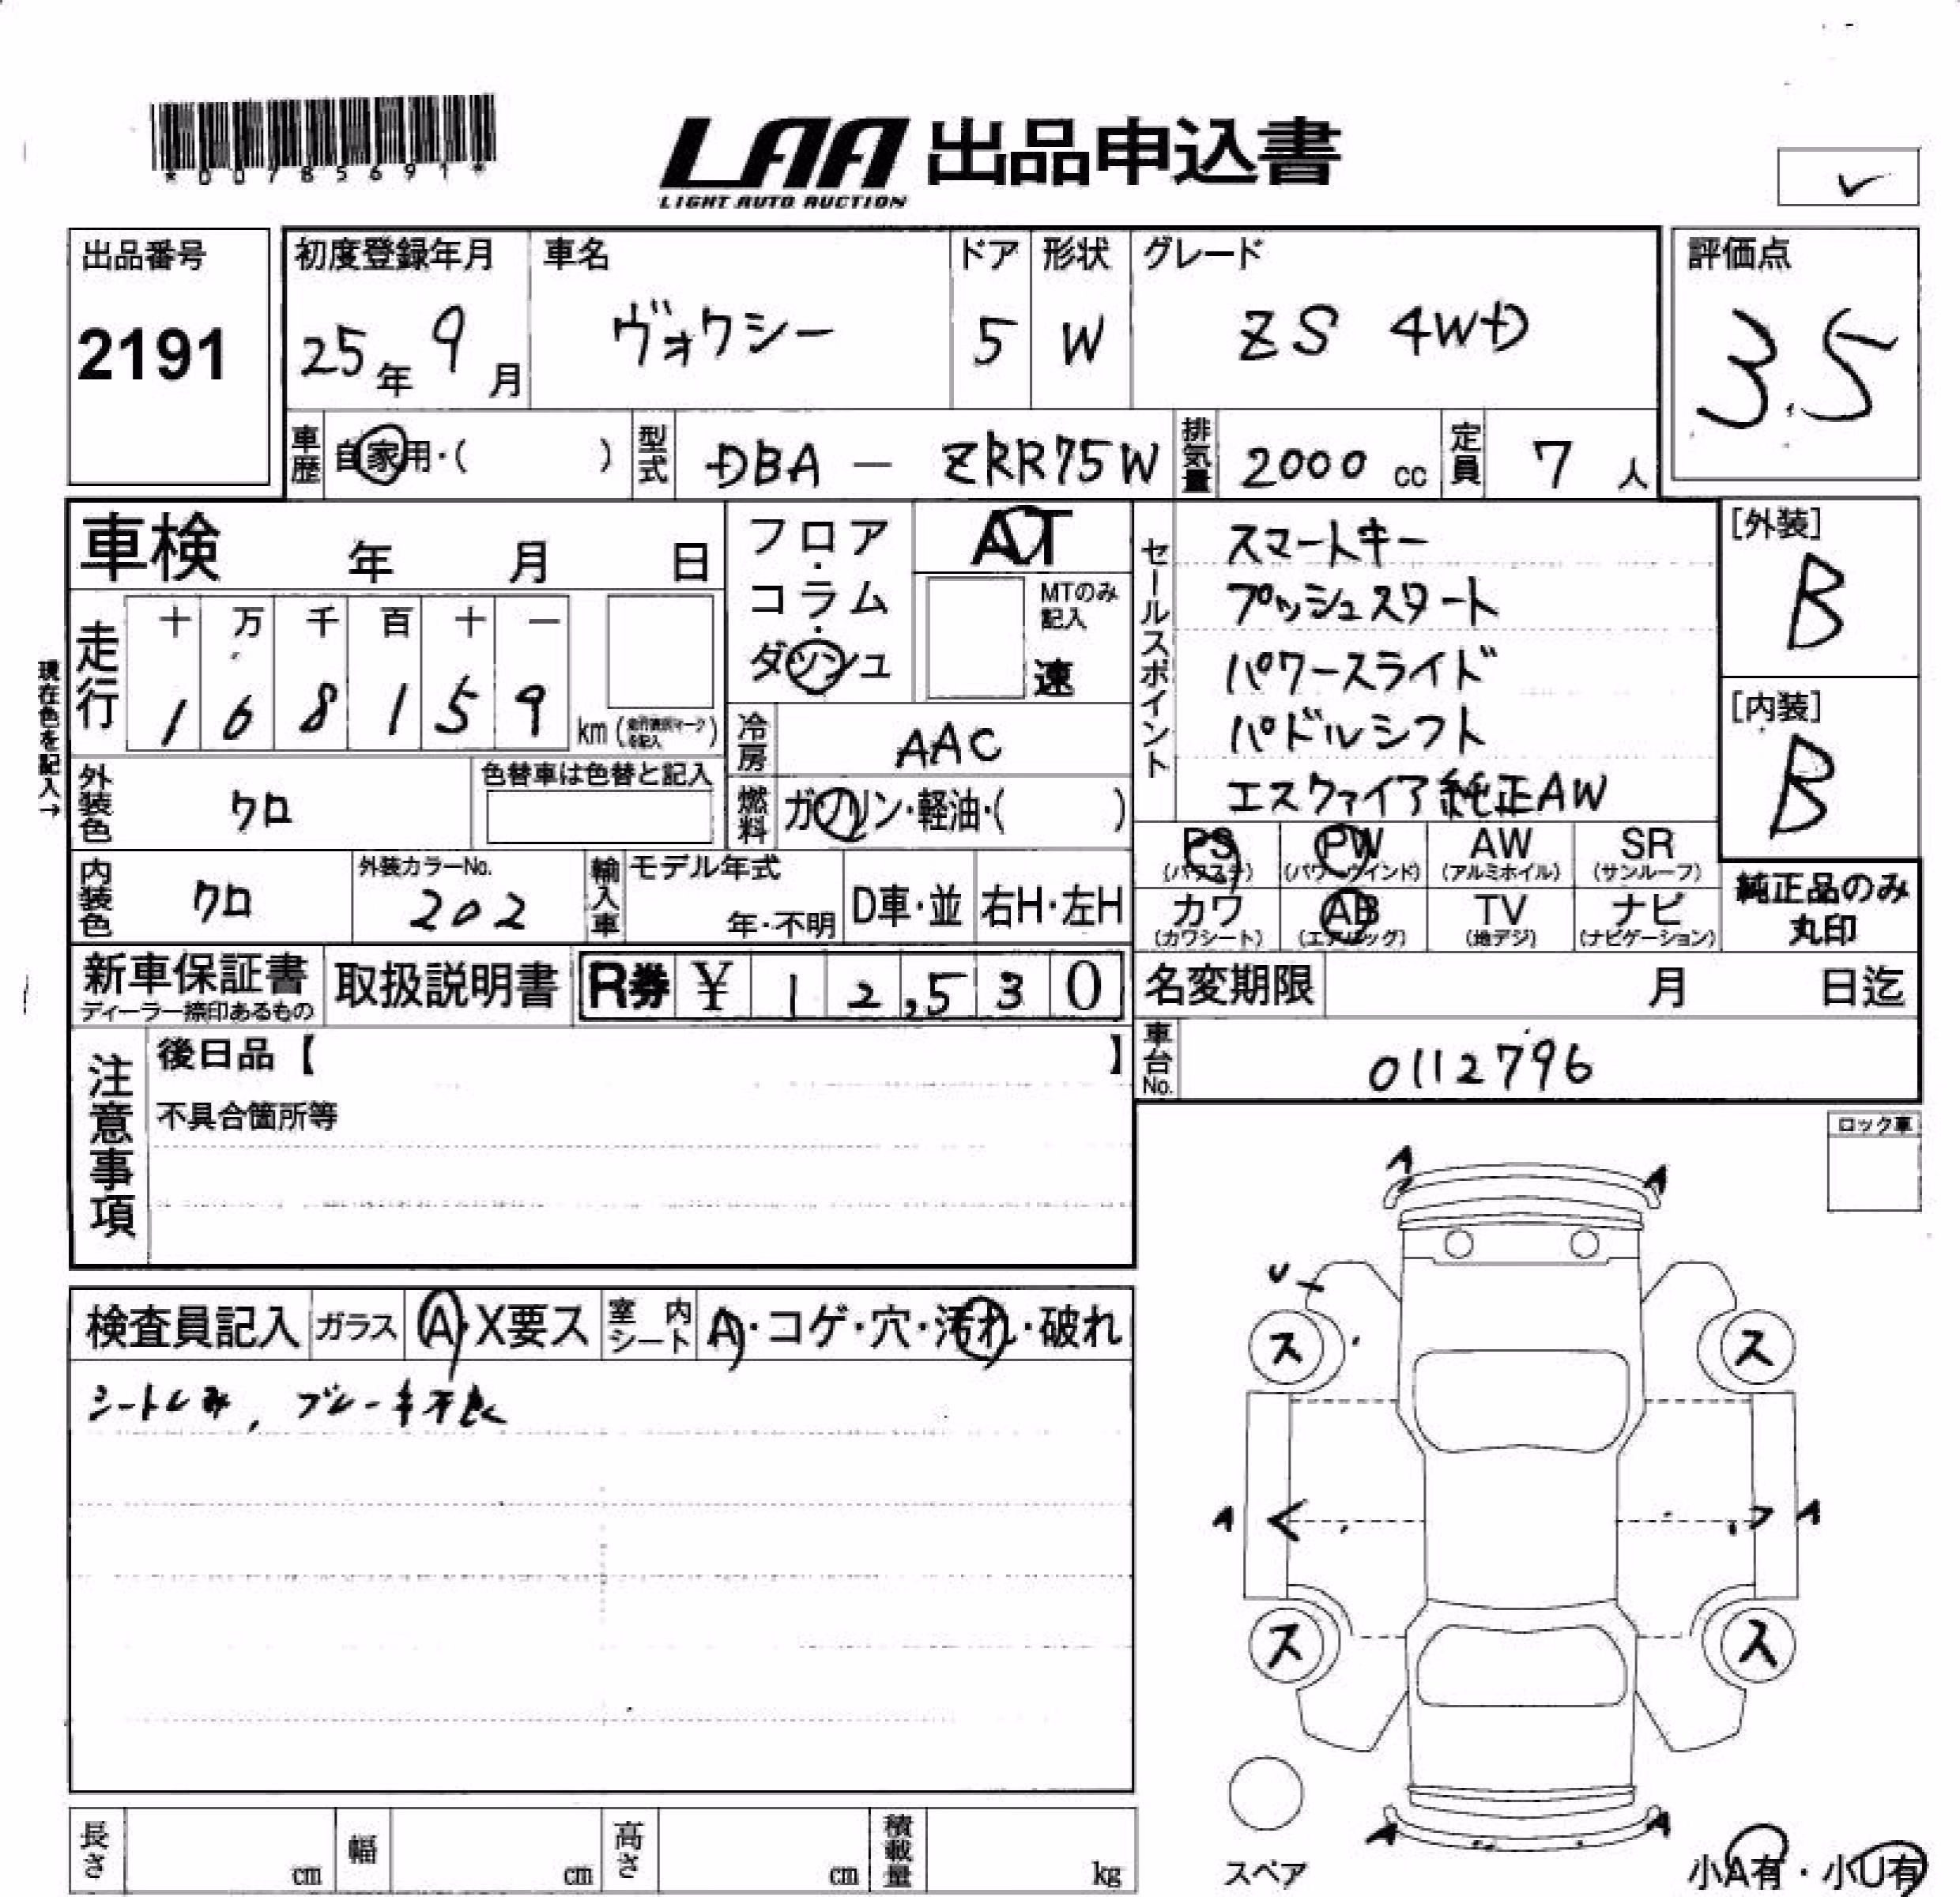 *00785691*
LAA 出品申込書
LIGHT AUTO AUCTION
出品番号
2191
初度登録年月
25年 9月
車名
ヴォクシー
ドア
5
形状
W
グレード
ZS 4WD
評価点
3.5
車歴 自家用・( )
型式 DBA — ZRR75W
排気量 2000 cc
定員 7 人
車検 年 月 日
現在色を記入→
走行
十 万 千 百 十 一
1 6 8 1 5 9 km
フロア・コラム・ダッシュ
AT
MTのみ記入
速
冷房 AAC
燃料 ガソリン・軽油・( )
外装色 クロ
色替車は色替と記入
内装色 クロ
外装カラーNo.
202
輸入車
モデル年式
年・不明
D車・並
右H・左H
セールスポイント
スマートキー
プッシュスタート
パワースライド
パドルシフト
エスクァイア純正AW
[外装]
B
[内装]
B
PS
(パワステ)
PW
(パワーウインド)
AW
(アルミホイル)
SR
(サンルーフ)
カワ
(カワシート)
AB
(エアバッグ)
TV
(地デジ)
ナビ
(ナビゲーション)
純正品のみ
丸印
新車保証書
ディーラー捺印あるもの
取扱説明書
R券 ¥ 12,530
名変期限 月 日迄
車台No. 0112796
注意事項
後日品【 】
不具合箇所等
ロック車
検査員記入
ガラス A・X要ス
室内シート A・コゲ・穴・汚れ・破れ
シートしみ, ブレーキ不良
A
A
U
ス
ス
A
A
ス
ス
A
A
スペア
小A有・小U有
長さ cm
幅 cm
高さ cm
積載量 kg